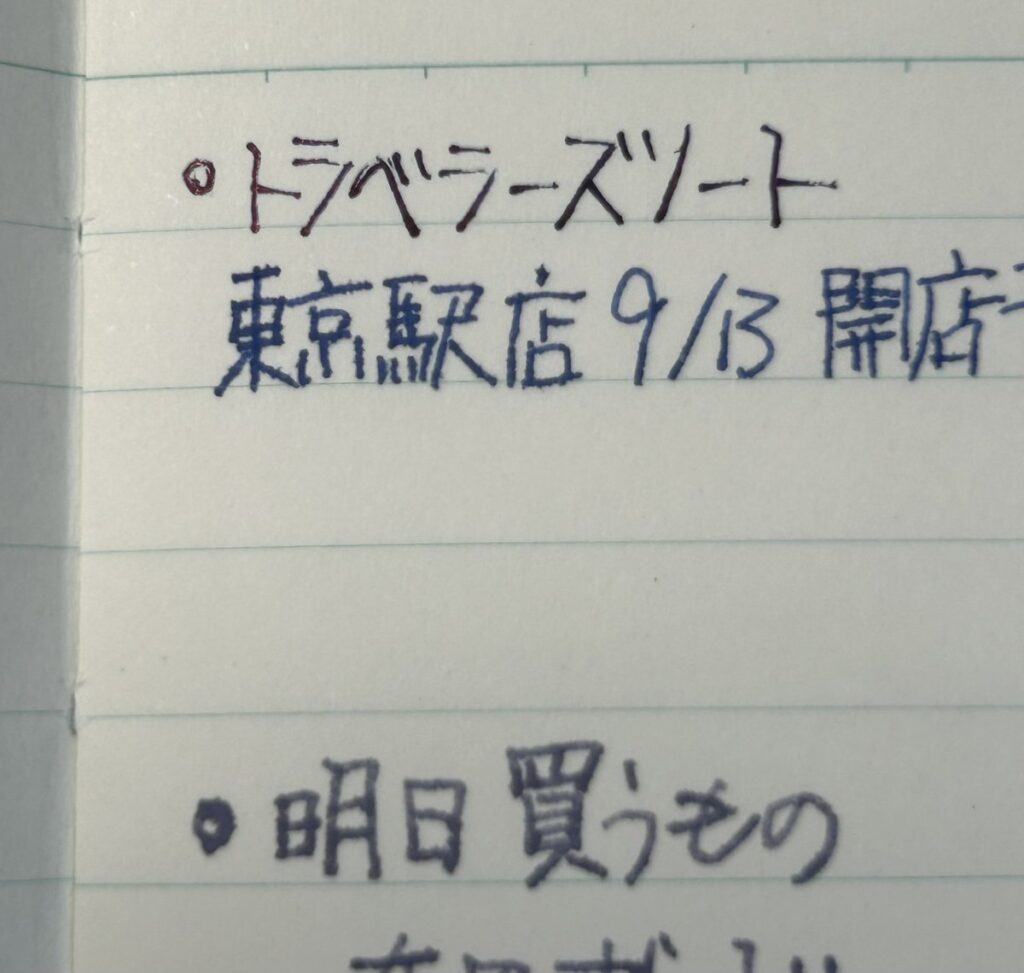 ・トラベラーズソート
東京駅店 9/13 開店
・明日買うもの